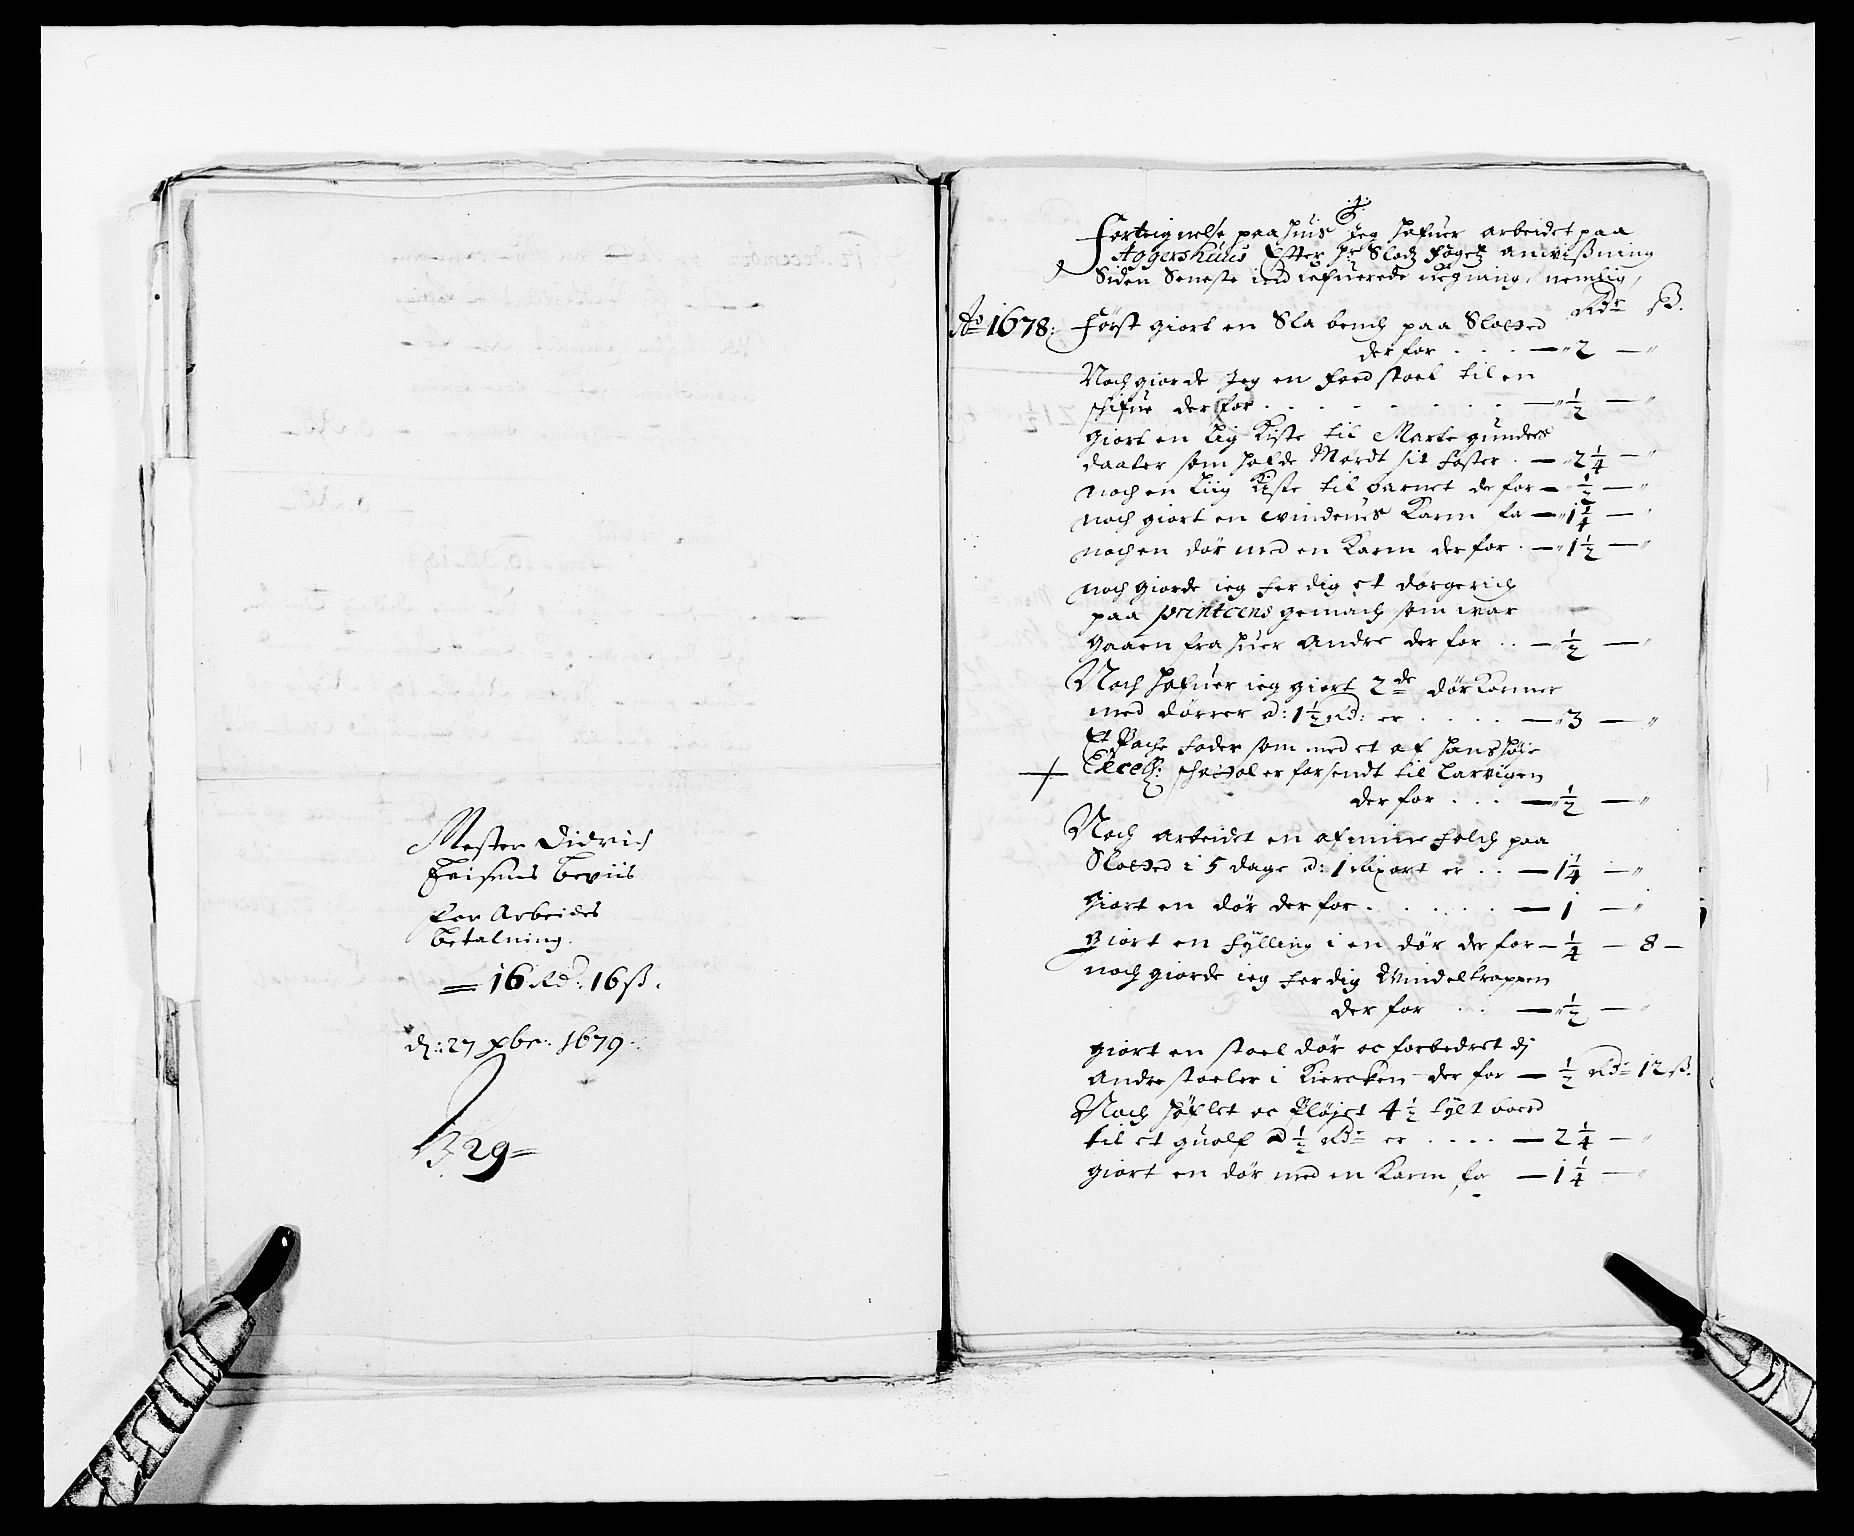 Mester Didrich
Frisens beviis
for Arbeides
betalning.
16 Rd: 16 ß.
dj: 27 xbr: 1679.
29
Forteignelse paa huis Jeg hafuer arbeidet paa
Aggershuus Efter Slodz fogetz anvißning
Siden Seneste ind lefuerede regning, nemlig,
Rdr ß.
Ao 1678: Først giort en Sla bench paa Slotted
der for . . . 2 —
Noch giorde Jeg en foed stoel til en
schifue der for . . . ½ —
giort en liig Kiste til Marte gunders
daater som hafde Mordt sit foster . 2¼ —
noch en liig Kiste til barnet der for ½ —
noch giort en vindeues Karm for 1¼ —
noch en dør med en Karm der for . 1½ —
noch giorde ieg ferdig et dørgericht
paa printzens gemach som war
gaaen fra huer Andre der for . . ½ —
Noch hafuer ieg giort 2de dør Karmer
med dørrer a: 1½ Rd: er . . . . 3 —
Et Pache foder som med et af hans høie
+ Excell: er forsendt til Larvigen
der for . . . ½ —
Noch Arbeidet en af mine folch paa
Slotted i 5 dage a: 1 Rixort er . . 1¼ —
Giort en dør der for . . . . . 1 —
Giort en fylling i en dør der for — ¼ — 8 —
noch giorde ieg ferdig Vindeltrappen
der for . . ½ —
giort en stoel dør oc forbedret dj
Andre stoeler i Kiercken der for — ½ Rd: 12 ß.
Noch høflet oc Pløjet 4½ tylt boerd
til et gualf a ½ Rd: er . . . . 2¼ —
giort en dør med en Karm for 1¼ —